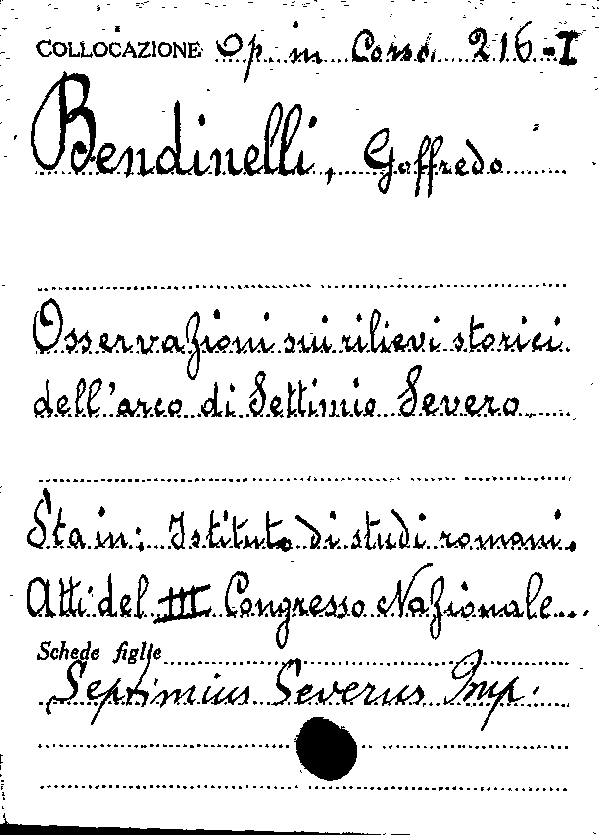 COLLOCAZIONE Op. in Corso. 216-I
Bendinelli, Goffredo
Osservazioni sui rilievi storici
dell'arco di Settimio Severo
Sta in: Istituto di studi romani.
Atti del III Congresso Nazionale...
Schede figlie
Septimius Severus Imp.